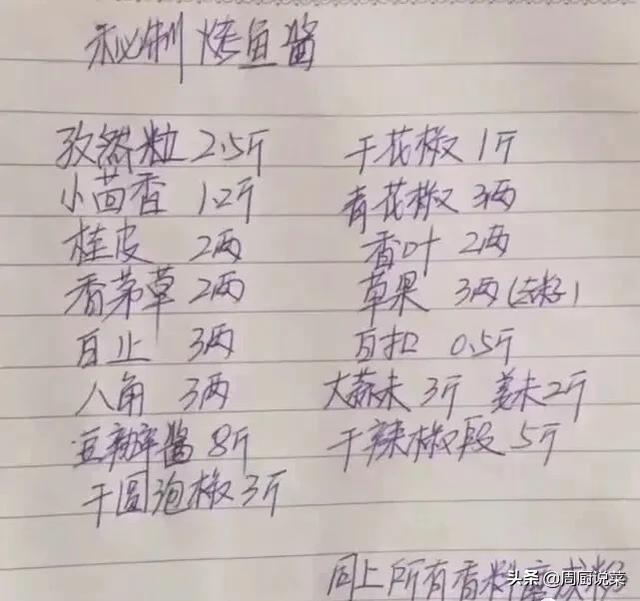 秘制 烤鱼酱
孜然粒 2.5斤 干花椒 1斤
小茴香 1.2斤 青花椒 3两
桂皮 2两 香叶 2两
香茅草 2两 草果 3两(去籽)
白止 3两 白扣 0.5斤
八角 3两 大蒜末 3斤 姜末2斤
豆瓣酱 8斤 干辣椒段 5斤
干圆泡椒 3斤
同上所有香料磨成粉
头条 @周厨说菜